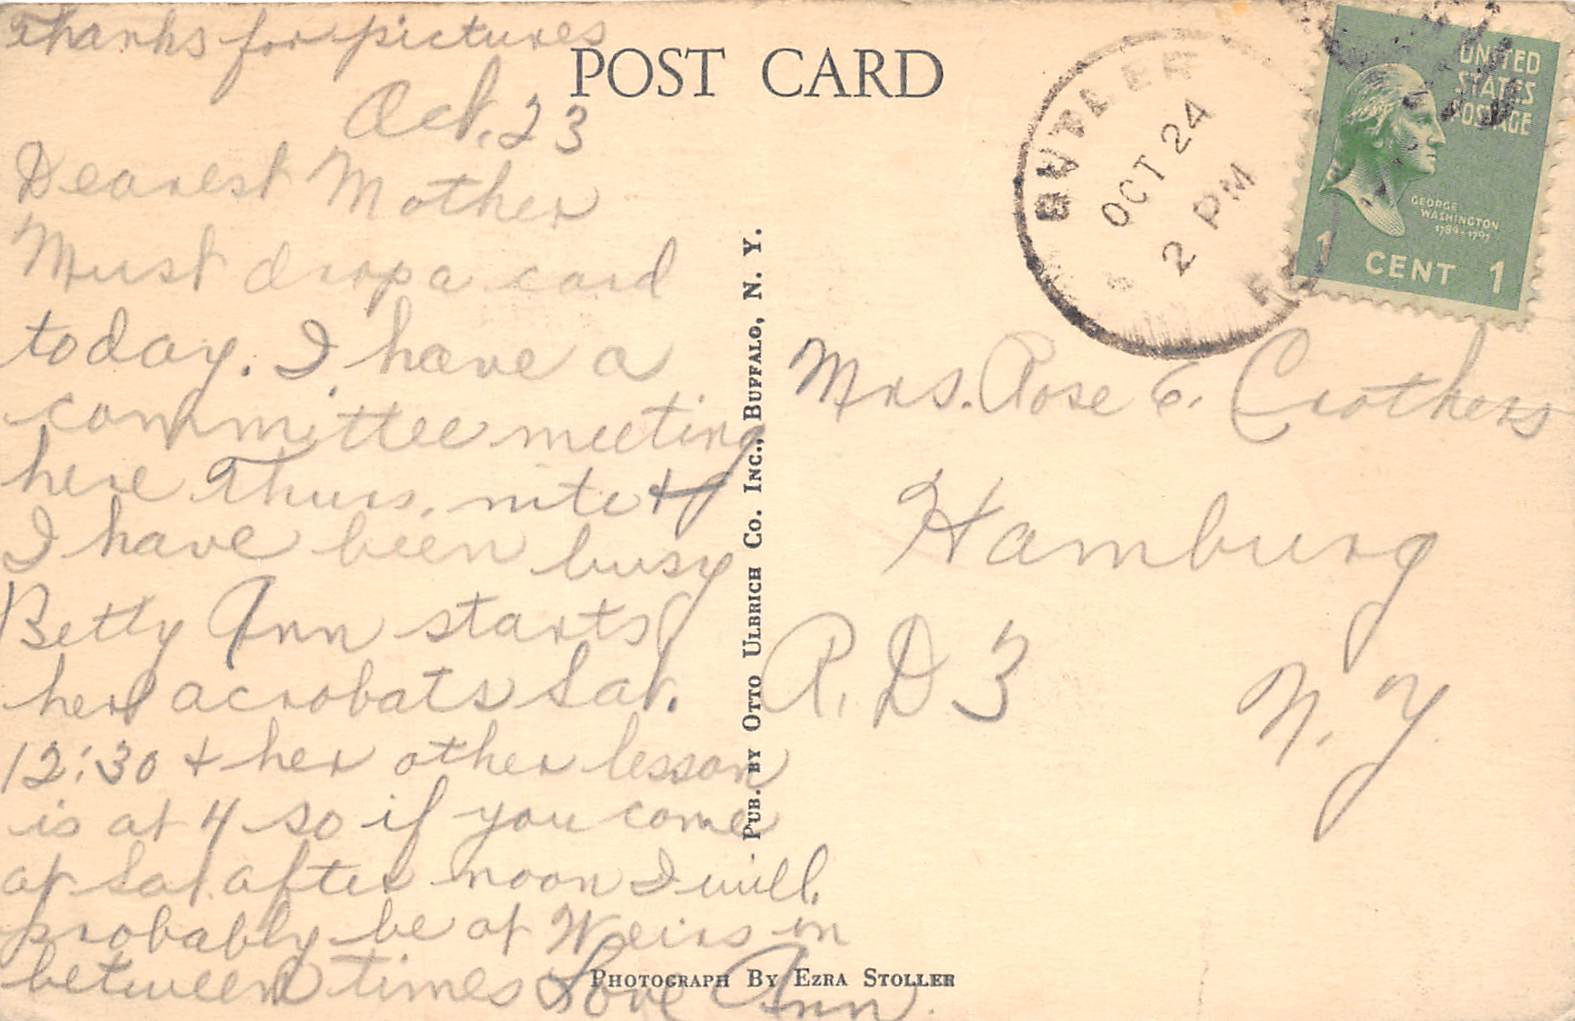 Thanks for pictures
POST CARD
Oct. 23
Dearest Mother
Must drop a card
today. I have a
committee meeting
here Thurs. nite &
I have been busy
Betty Ann starts
her acrobats Sat.
12:30 & her other lesson
is at 4 so if you come
at Sat. after noon I will
probably be at Weirs in
between times Love Ann.
PUB. BY OTTO ULBRICH CO. INC., BUFFALO, N. Y.
PHOTOGRAPH BY EZRA STOLLER
OCT 24
2 PM
UNITED
STATES
POSTAGE
GEORGE
WASHINGTON
1789-1797
1 CENT 1
Mrs. Rose C. Crothers
Hamburg
R. D 3
N. Y.